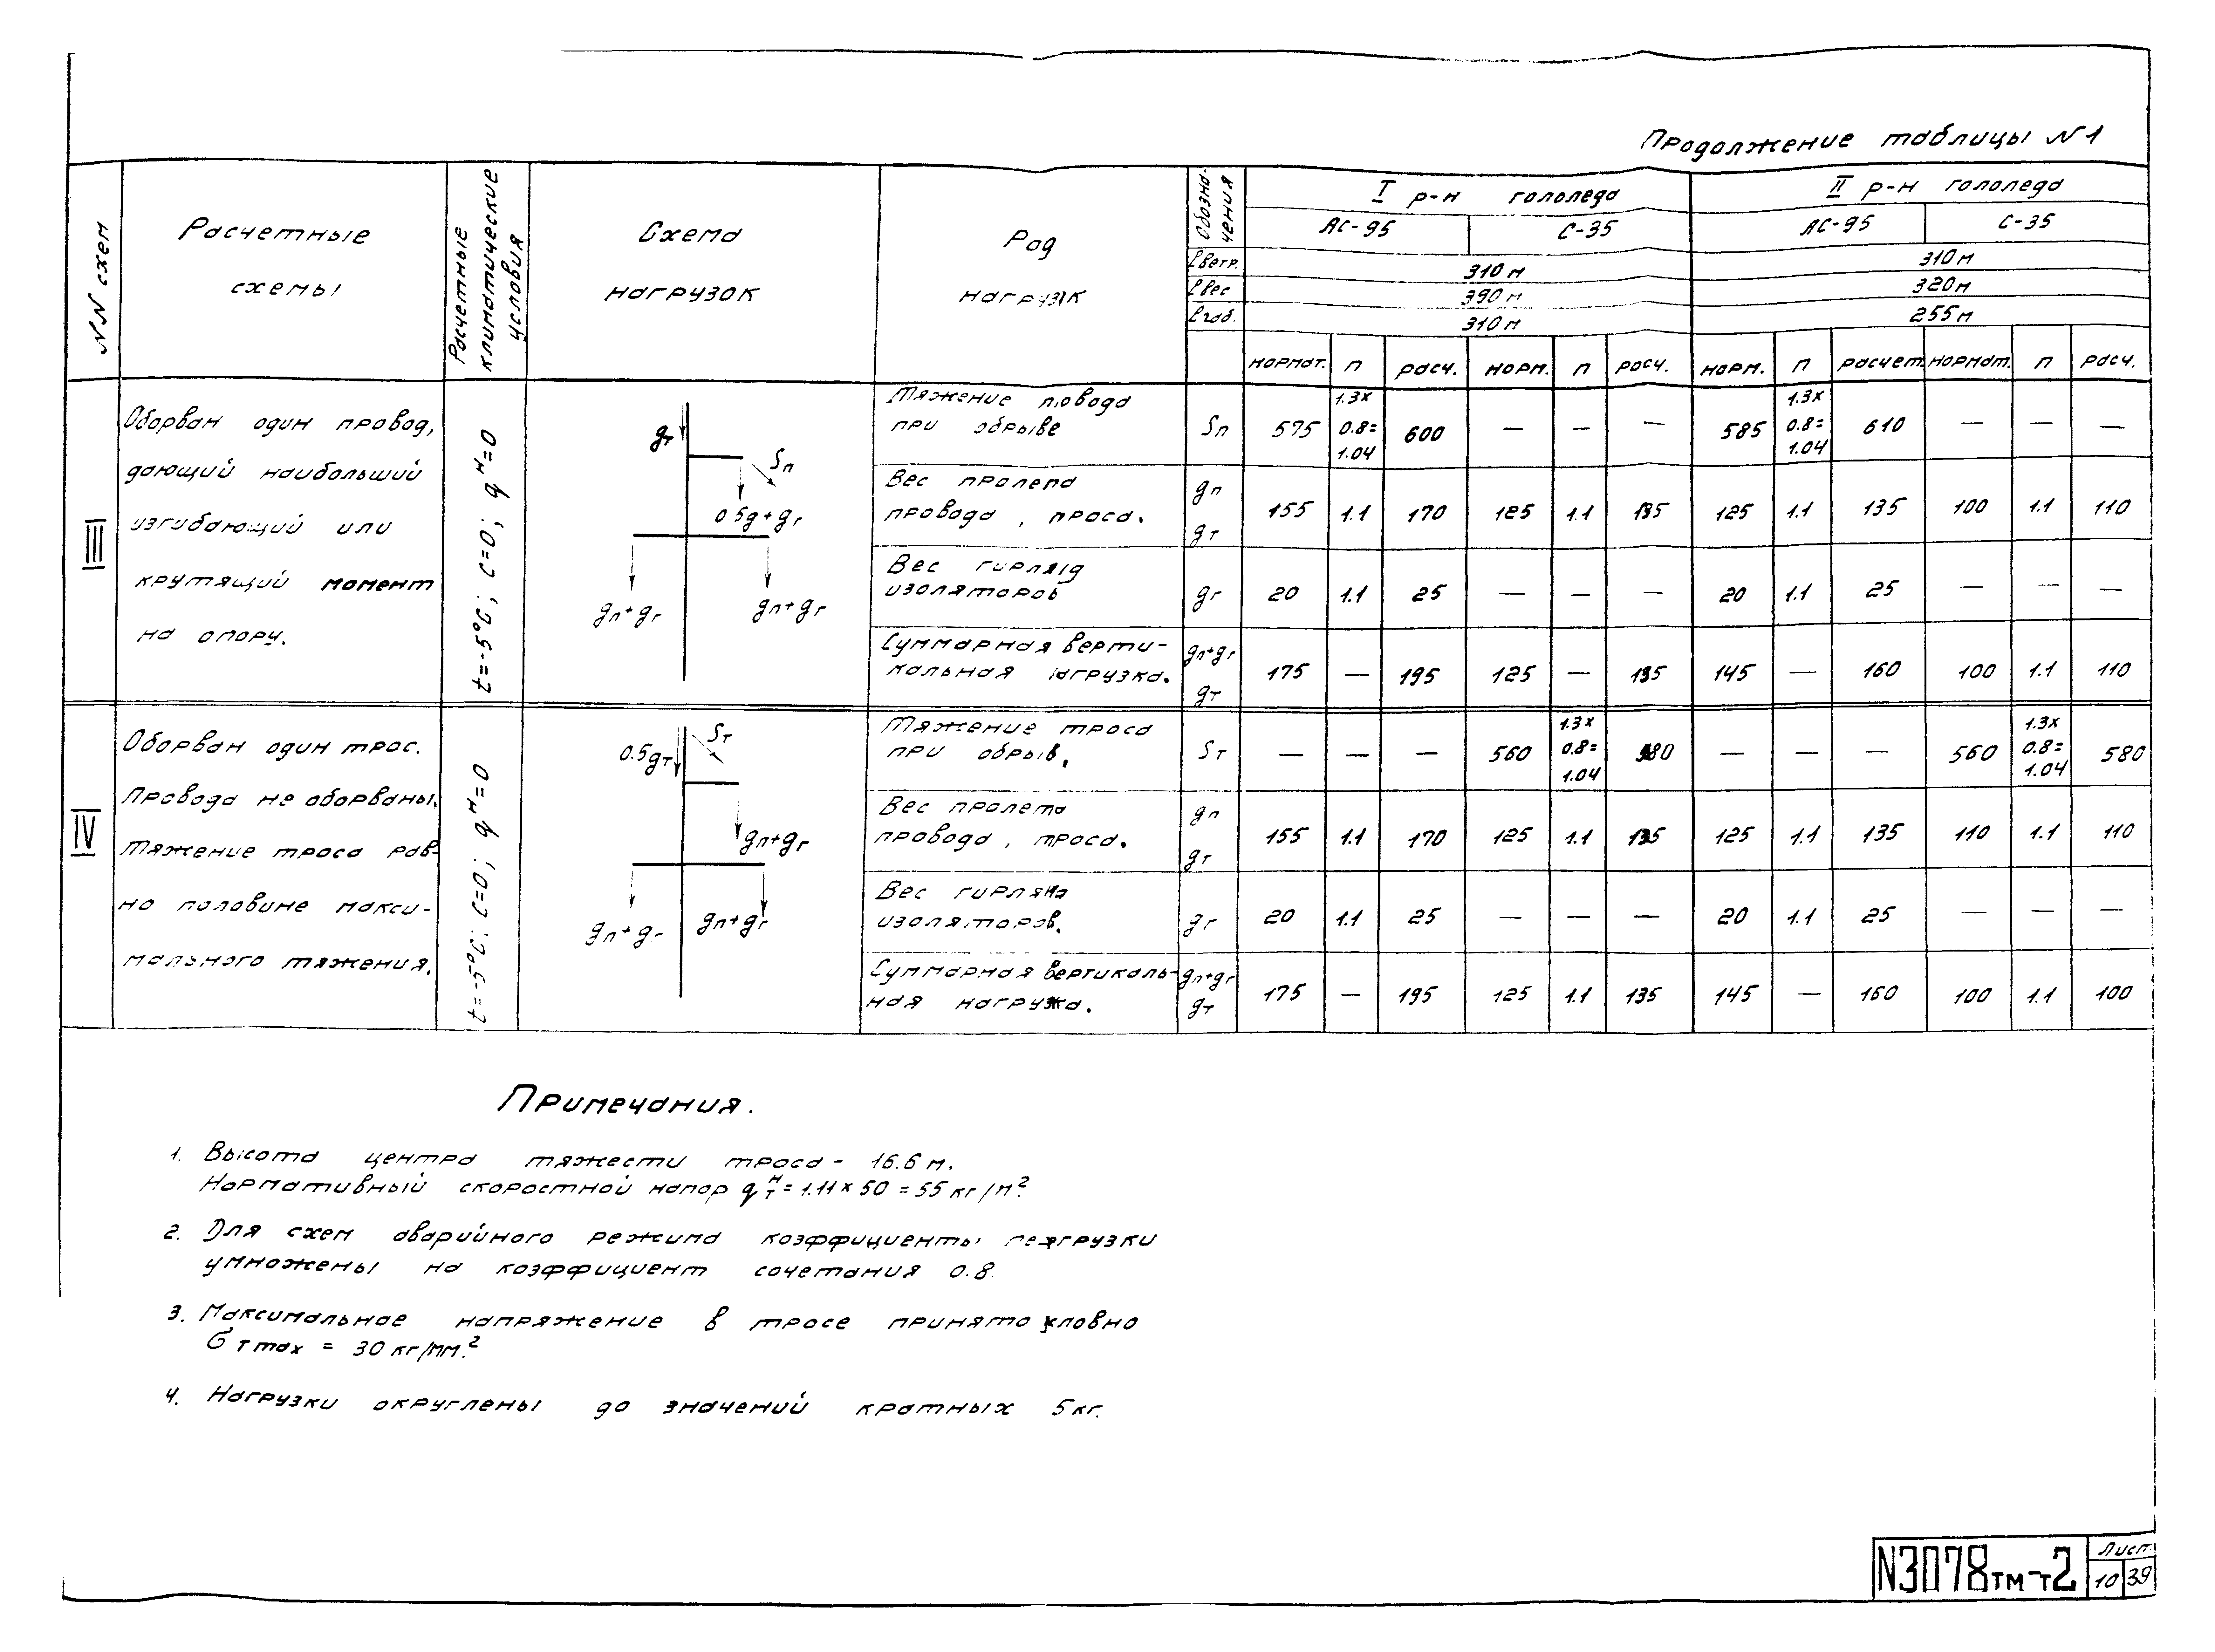 Продолжение таблицы N1
NN схем
Расчетные схемы
Расчетные климатические условия
Схема нагрузок
Род нагрузок
Обозначения
I р-н гололеда
II р-н гололеда
АС-95
С-35
АС-95
С-35
ℓветр. 310м 310м
ℓвес 390м 320м
ℓгаб. 310м 255м
нормат. п расч. норм. п расч. норм. п расчет. нормат. п расч.
III
Оборван один провод,
дающий наибольший
изгибающий или
крутящий момент
на опору.
t=-5°C; C=0; qᴴ=0
gт
Sп
0.5g+gг
gп+gг
gп+gг
Тяжение провода
при обрыве
Sп 575 1.3х 0.8= 1.04 600 — — — 585 1.3х 0.8= 1.04 610 — — —
Вес пролета
провода, троса.
gп
gт
155 1.1 170 125 1.1 135 125 1.1 135 100 1.1 110
Вес гирлянд
изоляторов
gг 20 1.1 25 — — — 20 1.1 25 — — —
Суммарная верти-
кальная нагрузка.
gп+gг
gт
175 — 195 125 — 135 145 — 160 100 1.1 110
IV
Оборван один трос.
Провода не оборваны.
Тяжение троса рав-
но половине макси-
мального тяжения.
t=-5°C; C=0; qᴴ=0
0.5gт
Sт
gп+gг
gп+gг
gп+gг
Тяжение троса
при обрыв.
Sт — — — 560 1.3х 0.8= 1.04 580 — — — 560 1.3х 0.8= 1.04 580
Вес пролета
провода, троса.
gп
gт
155 1.1 170 125 1.1 135 125 1.1 135 110 1.1 110
Вес гирлянд
изоляторов.
gг 20 1.1 25 — — — 20 1.1 25 — — —
Суммарная вертикаль-
ная нагрузка.
gп+gг
gт
175 — 195 125 1.1 135 145 — 160 100 1.1 100
Примечания.
1. Высота центра тяжести троса - 16.6 м.
Нормативный скоростной напор qᴴт = 1.11 х 50 = 55 кг/м².
2. Для схем аварийного режима коэффициенты перегрузки
умножены на коэффициент сочетания 0.8.
3. Максимальное напряжение в тросе принято условно
σт max = 30 кг/мм².
4. Нагрузки округлены до значений кратных 5кг.
N3078тм-т2
Лист
10 39